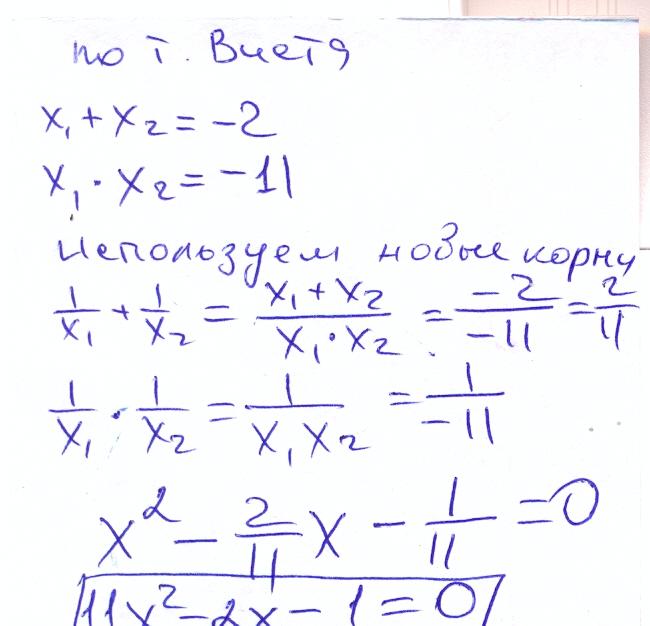 по т. Виетя
x₁ + x₂ = -2
x₁ · x₂ = -11
Используем новые корни
1/x₁ + 1/x₂ = (x₁ + x₂)/(x₁ · x₂) = -2/-11 = 2/11
1/x₁ · 1/x₂ = 1/(x₁x₂) = 1/-11
x² - 2/11 x - 1/11 = 0
11x² - 2x - 1 = 0